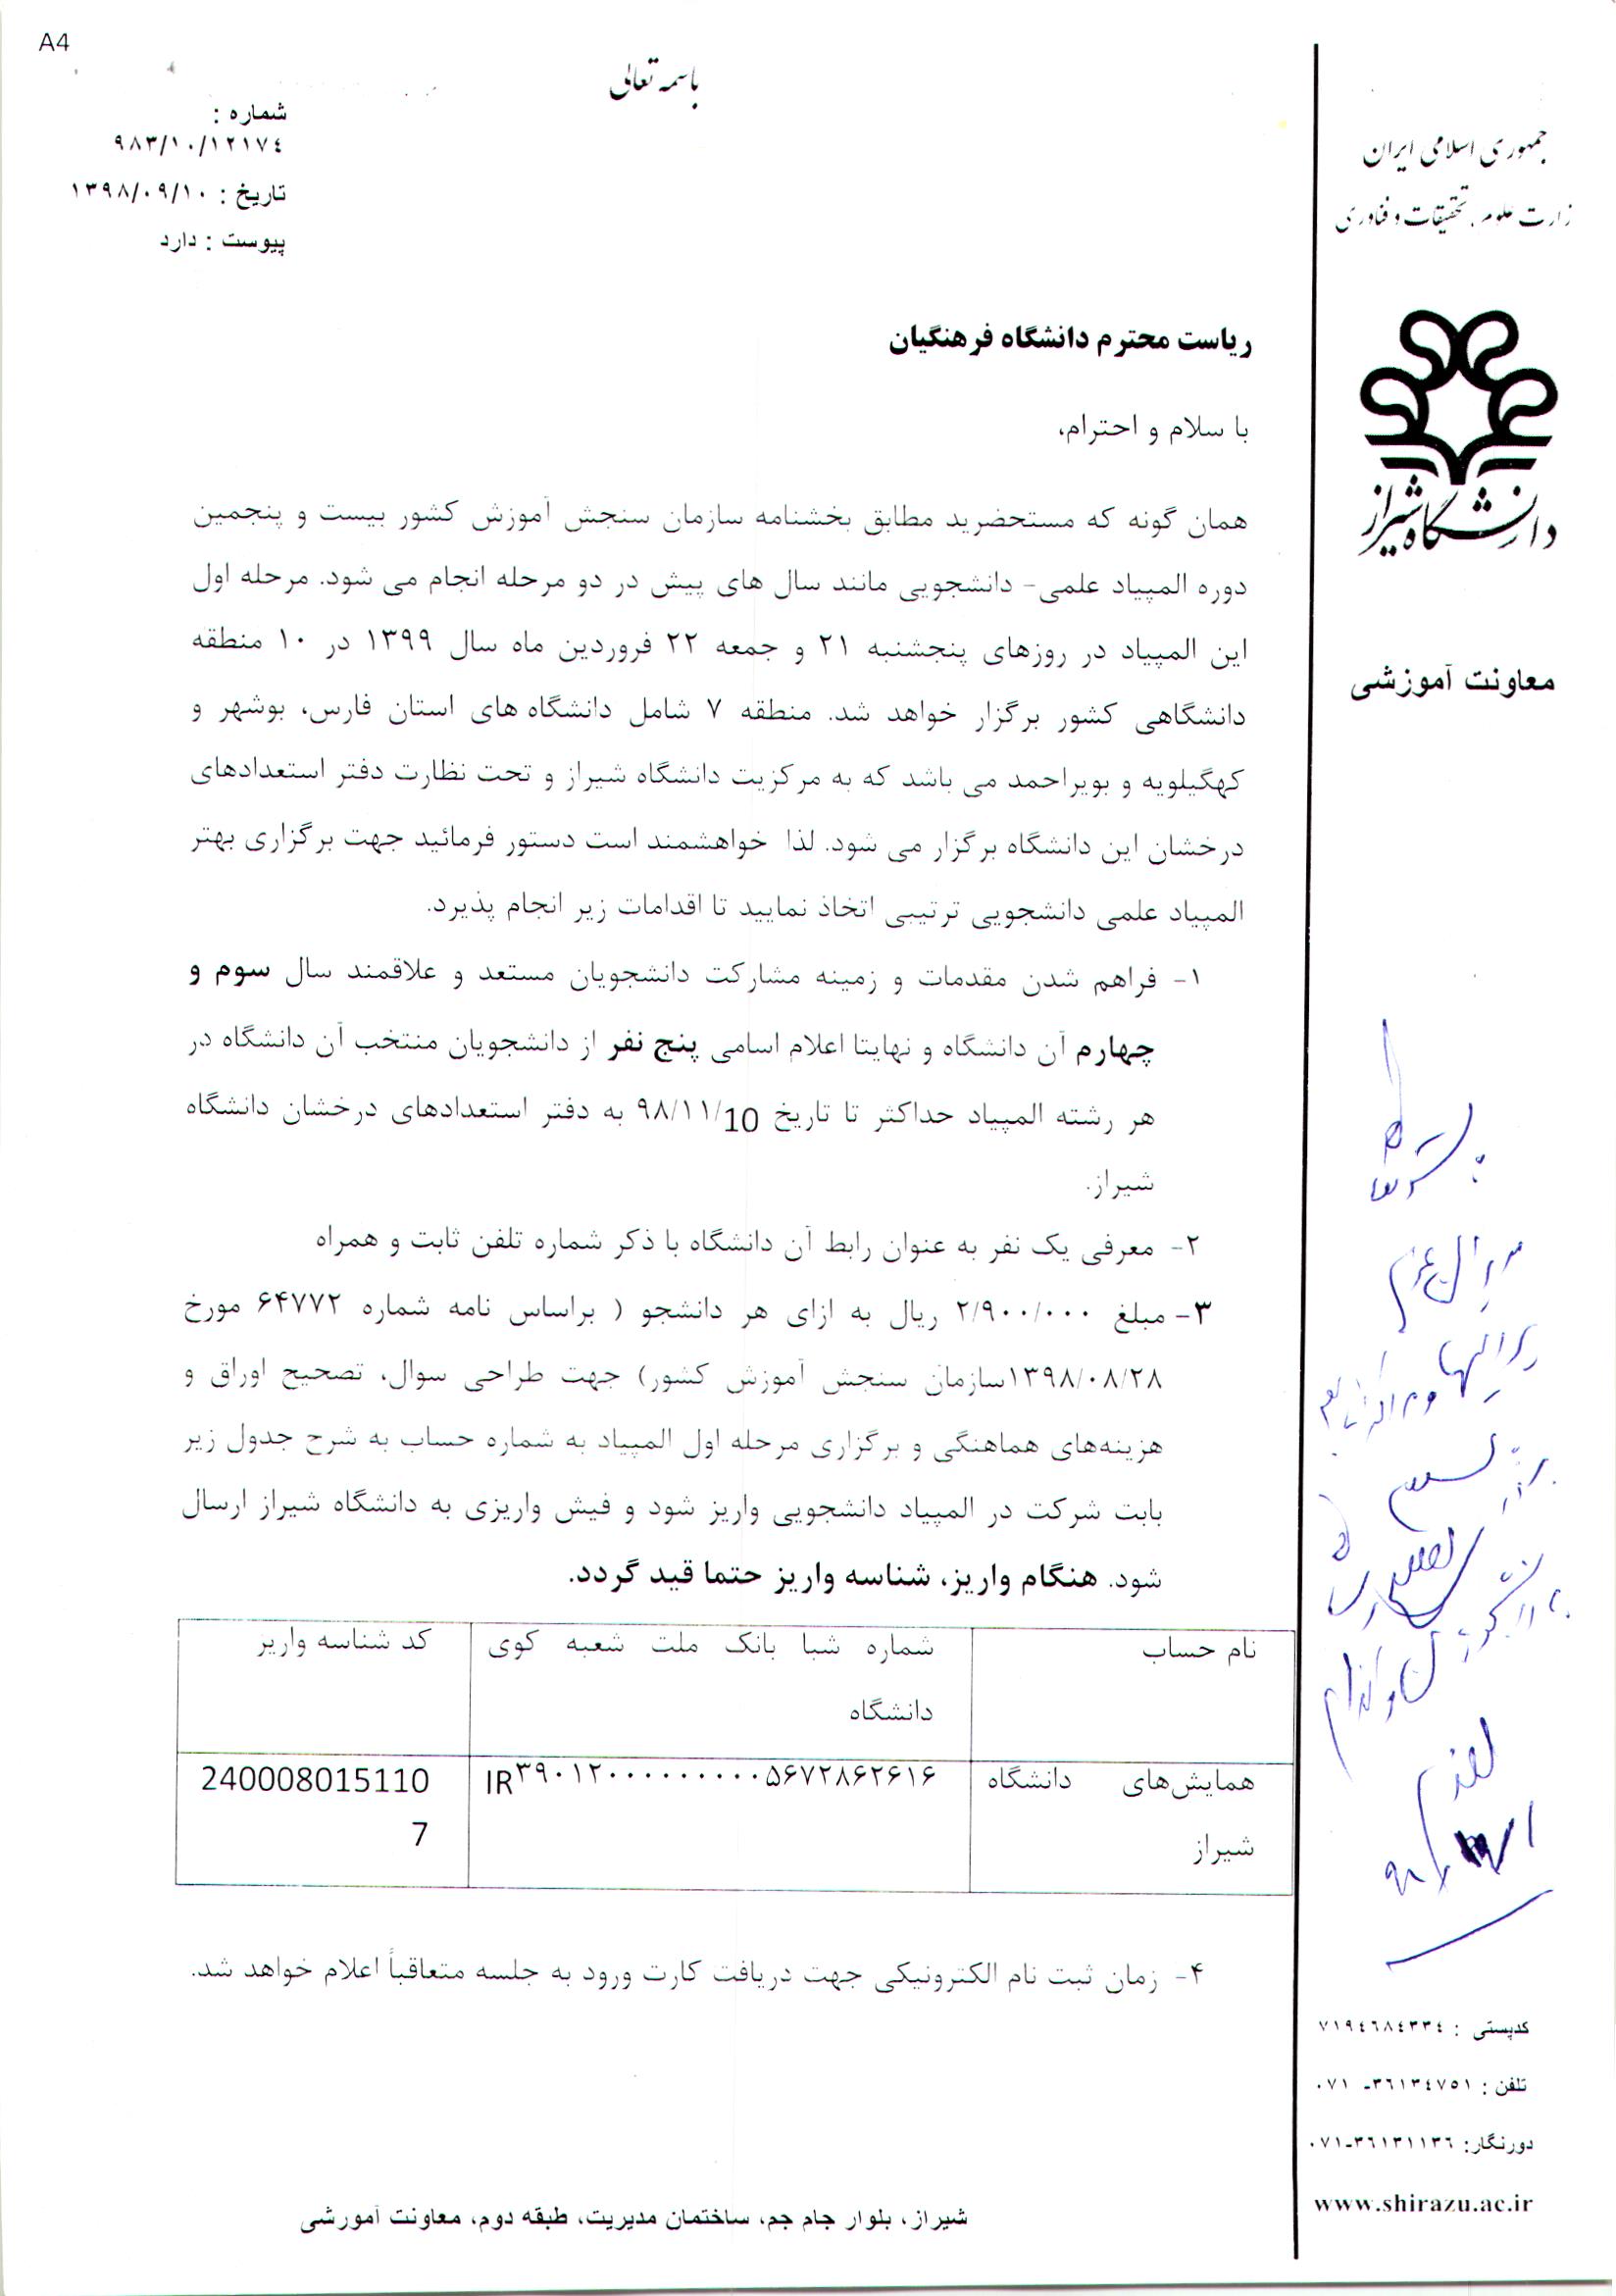 A4
باسمه تعالی
شماره :
۹۸۳/۱۰/۱۲۱۷٤
تاریخ : ۱۳۹۸/۰۹/۱۰
پیوست : دارد
جمهوری اسلامی ایران
زارت علوم، تحقیقات و فناوری
دانشگاه شیراز
معاونت آموزشی
ریاست محترم دانشگاه فرهنگیان
با سلام و احترام،
همان گونه که مستحضرید مطابق بخشنامه سازمان سنجش آموزش کشور بیست و پنجمین
دوره المپیاد علمی- دانشجویی مانند سال های پیش در دو مرحله انجام می شود. مرحله اول
این المپیاد در روزهای پنجشنبه ۲۱ و جمعه ۲۲ فروردین ماه سال ۱۳۹۹ در ۱۰ منطقه
دانشگاهی کشور برگزار خواهد شد. منطقه ۷ شامل دانشگاه های استان فارس، بوشهر و
کهگیلویه و بویراحمد می باشد که به مرکزیت دانشگاه شیراز و تحت نظارت دفتر استعدادهای
درخشان این دانشگاه برگزار می شود. لذا خواهشمند است دستور فرمائید جهت برگزاری بهتر
المپیاد علمی دانشجویی ترتیبی اتخاذ نمایید تا اقدامات زیر انجام پذیرد.
۱- فراهم شدن مقدمات و زمینه مشارکت دانشجویان مستعد و علاقمند سال سوم و
چهارم آن دانشگاه و نهایتا اعلام اسامی پنج نفر از دانشجویان منتخب آن دانشگاه در
هر رشته المپیاد حداکثر تا تاریخ ۹۸/۱۱/10 به دفتر استعدادهای درخشان دانشگاه
شیراز.
۲- معرفی یک نفر به عنوان رابط آن دانشگاه با ذکر شماره تلفن ثابت و همراه
۳- مبلغ ۲/۹۰۰/۰۰۰ ریال به ازای هر دانشجو ( براساس نامه شماره ۶۴۷۷۲ مورخ
۱۳۹۸/۰۸/۲۸سازمان سنجش آموزش کشور) جهت طراحی سوال، تصحیح اوراق و
هزینه‌های هماهنگی و برگزاری مرحله اول المپیاد به شماره حساب به شرح جدول زیر
بابت شرکت در المپیاد دانشجویی واریز شود و فیش واریزی به دانشگاه شیراز ارسال
شود. هنگام واریز، شناسه واریز حتما قید گردد.
نام حساب
شماره شبا بانک ملت شعبه کوی
دانشگاه
کد شناسه واریز
همایش‌های دانشگاه
شیراز
IR۳۹۰۱۲۰۰۰۰۰۰۰۰۰۰۵۶۷۲۸۶۲۶۱۶
240008015110
7
۴- زمان ثبت نام الکترونیکی جهت دریافت کارت ورود به جلسه متعاقباً اعلام خواهد شد.
کدپستی : ۷۱۹٤٦۸٤۳۳٤
تلفن : ۳٦۱۳٤۷۵۱- ۰۷۱
دورنگار: ۳٦۱۳۱۱۳٦-۰۷۱
www.shirazu.ac.ir
شیراز، بلوار جام جم، ساختمان مدیریت، طبقه دوم، معاونت آمورشی